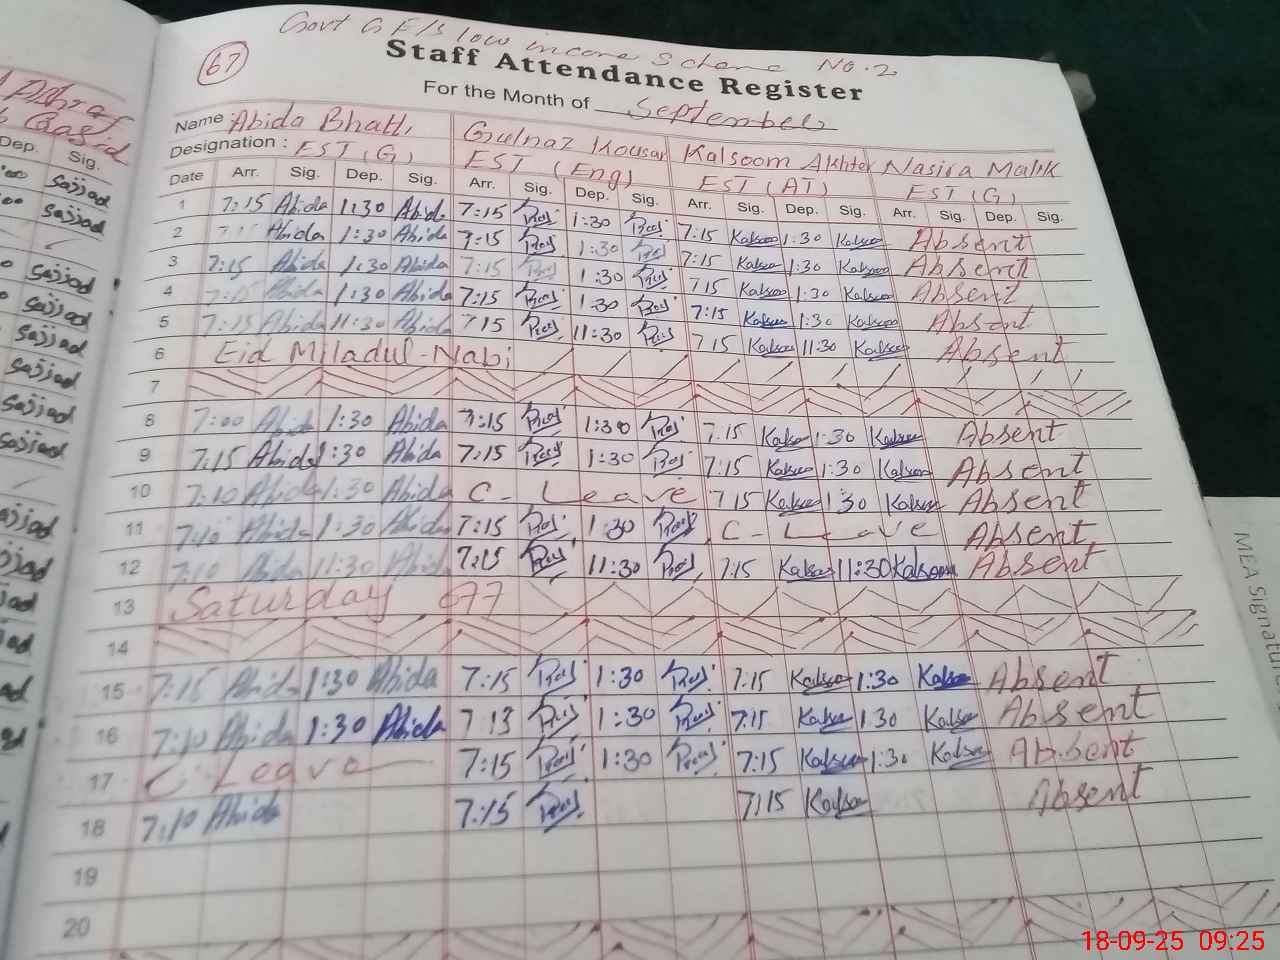 Govt G E/S low income Scheme No. 2
67
Staff Attendance Register
For the Month of September
Name Abida Bhatti Gulnaz Kousar Kalsoom Akhter Nasira Malik
Designation : EST (G) EST (Eng) EST (AT) EST (G)
Date Arr. Sig. Dep. Sig. Arr. Sig. Dep. Sig. Arr. Sig. Dep. Sig. Arr. Sig. Dep. Sig.
1 7:15 Abida 1:30 Abida 7:15 1:30 7:15 Kalsoo 1:30 Kalsoo Absent
2 Abida 1:30 Abida 7:15 1:30 7:15 Kalsoo 1:30 Kalsoo Absent
3 7:15 Abida 1:30 Abida 7:15 1:30 7 15 Kalsoo 1:30 Kalsoo Absent
4 7:15 Abida 1:30 Abida 7:15 1:30 7:15 Kalsoo 1:30 Kalsoo Absent
5 7:15 Abida 11:30 Abida 7 15 11:30 7 15 Kalsoo 11:30 Kalsoo Absent
6 Eid Miladul-Nabi
7
8 7:00 Abida 1:30 Abida 7:15 1:30 7.15 Kalsoo 1:30 Kalsoo Absent
9 7:15 Abida 1:30 Abida 7:15 1:30 7:15 Kalsoo 1:30 Kalsoo Absent
10 7:10 Abida 1:30 Abida C- Leave 7 15 Kalsoo 1:30 Kalsoo Absent
11 7:10 Abida 1:30 Abida 7:15 1:30 C- Leave Absent
12 7:10 Abida 11:30 Abida 7:15 11:30 7:15 Kalsoo 11:30 Kalsoom Absent
13 Saturday off
14
15 7:15 Abida 1:30 Abida 7:15 1:30 7:15 Kalsoo 1:30 Kalsoo Absent
16 7:10 Abida 1:30 Abida 7 13 1:30 7:15 Kalsoo 1:30 Kalsoo Absent
17 C Leave 7:15 1:30 7:15 Kalsoo 1:30 Kalsoo Absent
18 7:10 Abida 7:15 7:15 Kalsoo Absent
19
20
Dep. Sig.
sajjad
sajjad
sajjad
sajjad
sajjad
sajjad
sajjad
sajjad
MEA Signature
18-09-25 09:25